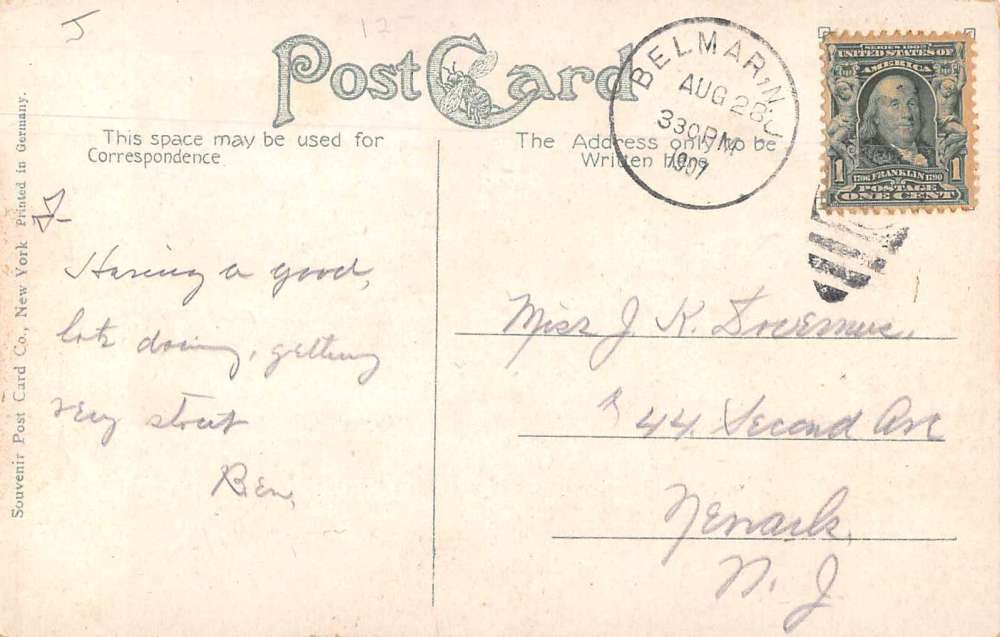 J
12
Post Card
BELMAR, N.J.
AUG 28
330 PM
1907
SERIES 1902
UNITED STATES OF
AMERICA
1 1
1706 FRANKLIN 1790
POSTAGE
ONE CENT
This space may be used for
Correspondence
The Address only to be
Written here
Souvenir Post Card Co., New York Printed in Germany.
Having a good,
lots doing, getting
very stout
Ben,
Miss J. K.
44 Second Ave
Newark,
N. J.